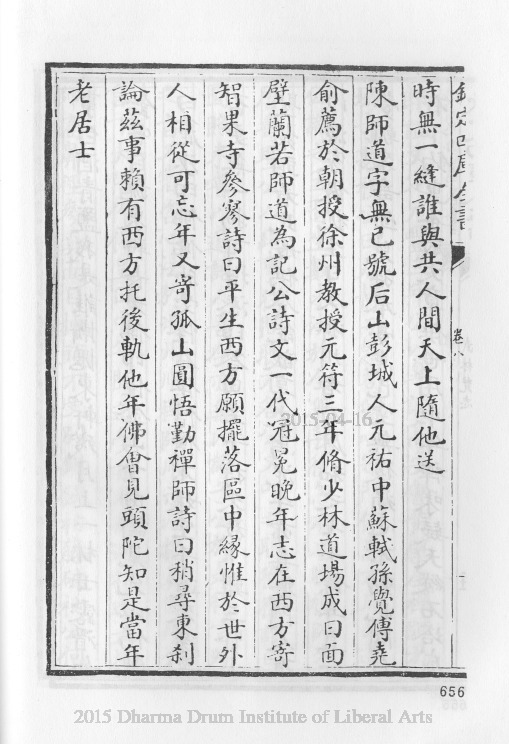 欽定四庫全書
卷八
時無一縫誰與共人間天上隨他送
陳師道字無已號后山彭城人元祐中蘇軾孫覺傅堯
俞薦於朝授徐州教授元符三年脩少林道場成曰面
壁蘭若師道為記公詩文一代冠冕晚年志在西方寄
智果寺參寥詩曰平生西方願擺落區中縁惟於世外
人相從可忘年又寄孤山圓悟勤禪師詩曰稍尋東刹
論茲事賴有西方托後軌他年佛會見頭陀知是當年
老居士
2015-04-16
656
2015 Dharma Drum Institute of Liberal Arts